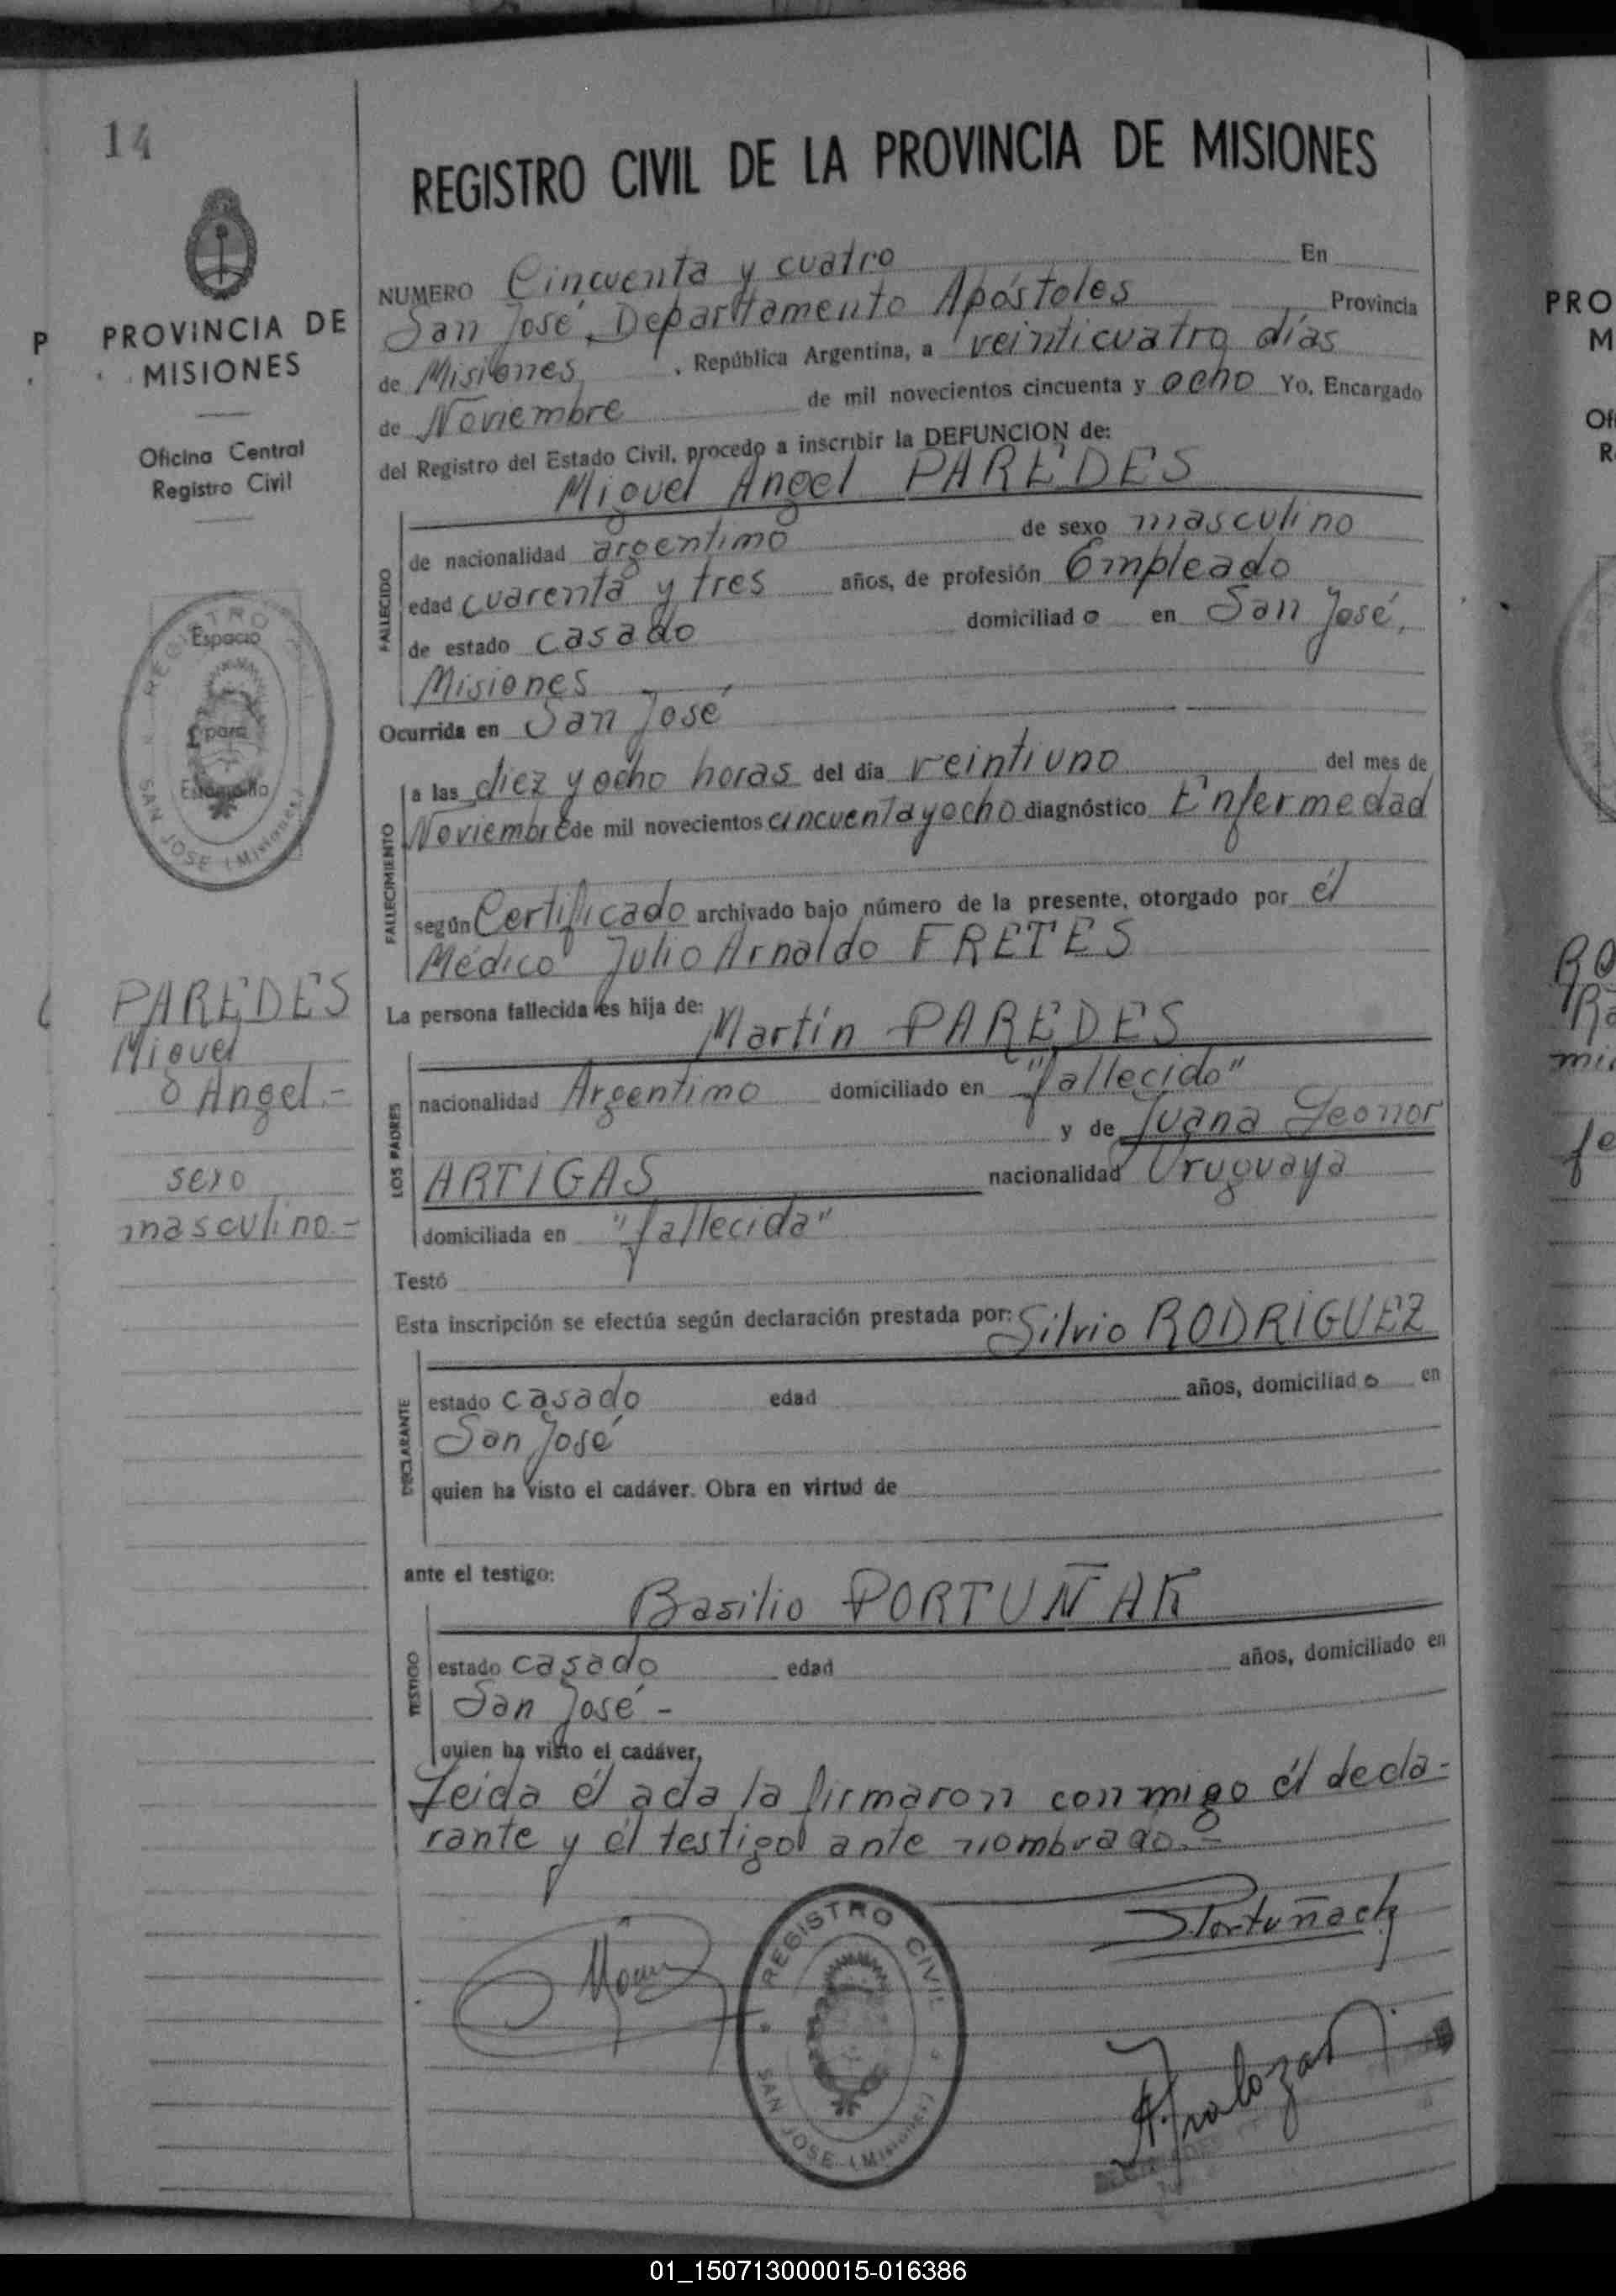 14
PROVINCIA DE
MISIONES
Oficina Central
Registro Civil
REGISTRO CIVIL
Espacio
para
Estampilla
SAN JOSE (Misiones)
PAREDES
Miguel
Angel.-
sexo
masculino.-
REGISTRO CIVIL DE LA PROVINCIA DE MISIONES
NUMERO Cincuenta y cuatro En
San José, Departtamento Apóstoles Provincia
de Misiones, República Argentina, a veinticuatro días
de Noviembre de mil novecientos cincuenta y ocho Yo, Encargado
del Registro del Estado Civil, procedo a inscribir la DEFUNCION de:
Miguel Angel PAREDES
FALLECIDO
de nacionalidad argentino de sexo masculino
edad cuarenta y tres años, de profesión Empleado
de estado casado domiciliado en San José,
Misiones
Ocurrida en San José
FALLECIMIENTO
a las diez y ocho horas del día veintiuno del mes de
Noviembre de mil novecientos cincuenta y ocho diagnóstico Enfermedad
según Certificado archivado bajo número de la presente, otorgado por él
Médico Julio Arnaldo FRETES
La persona fallecida es hija de: Martín PAREDES
LOS PADRES
nacionalidad Argentino domiciliado en "fallecido"
y de Juana Leonor
ARTIGAS nacionalidad Uruguaya
domiciliada en "fallecida"
Testó
Esta inscripción se efectúa según declaración prestada por: Silvio RODRIGUEZ
DECLARANTE
estado casado edad años, domiciliado en
San José
quien ha visto el cadáver. Obra en virtud de
ante el testigo:
Basilio PORTUÑAK
TESTIGO
estado casado edad años, domiciliado en
San José -
quien ha visto el cadáver,
Leida él acta la firmaron conmigo él decla-
rante y él testigo ante nombrado.-
Portuñack
REGISTRO CIVIL
SAN JOSE (Misiones)
PRO
M
Ofi
R
01_150713000015-016386